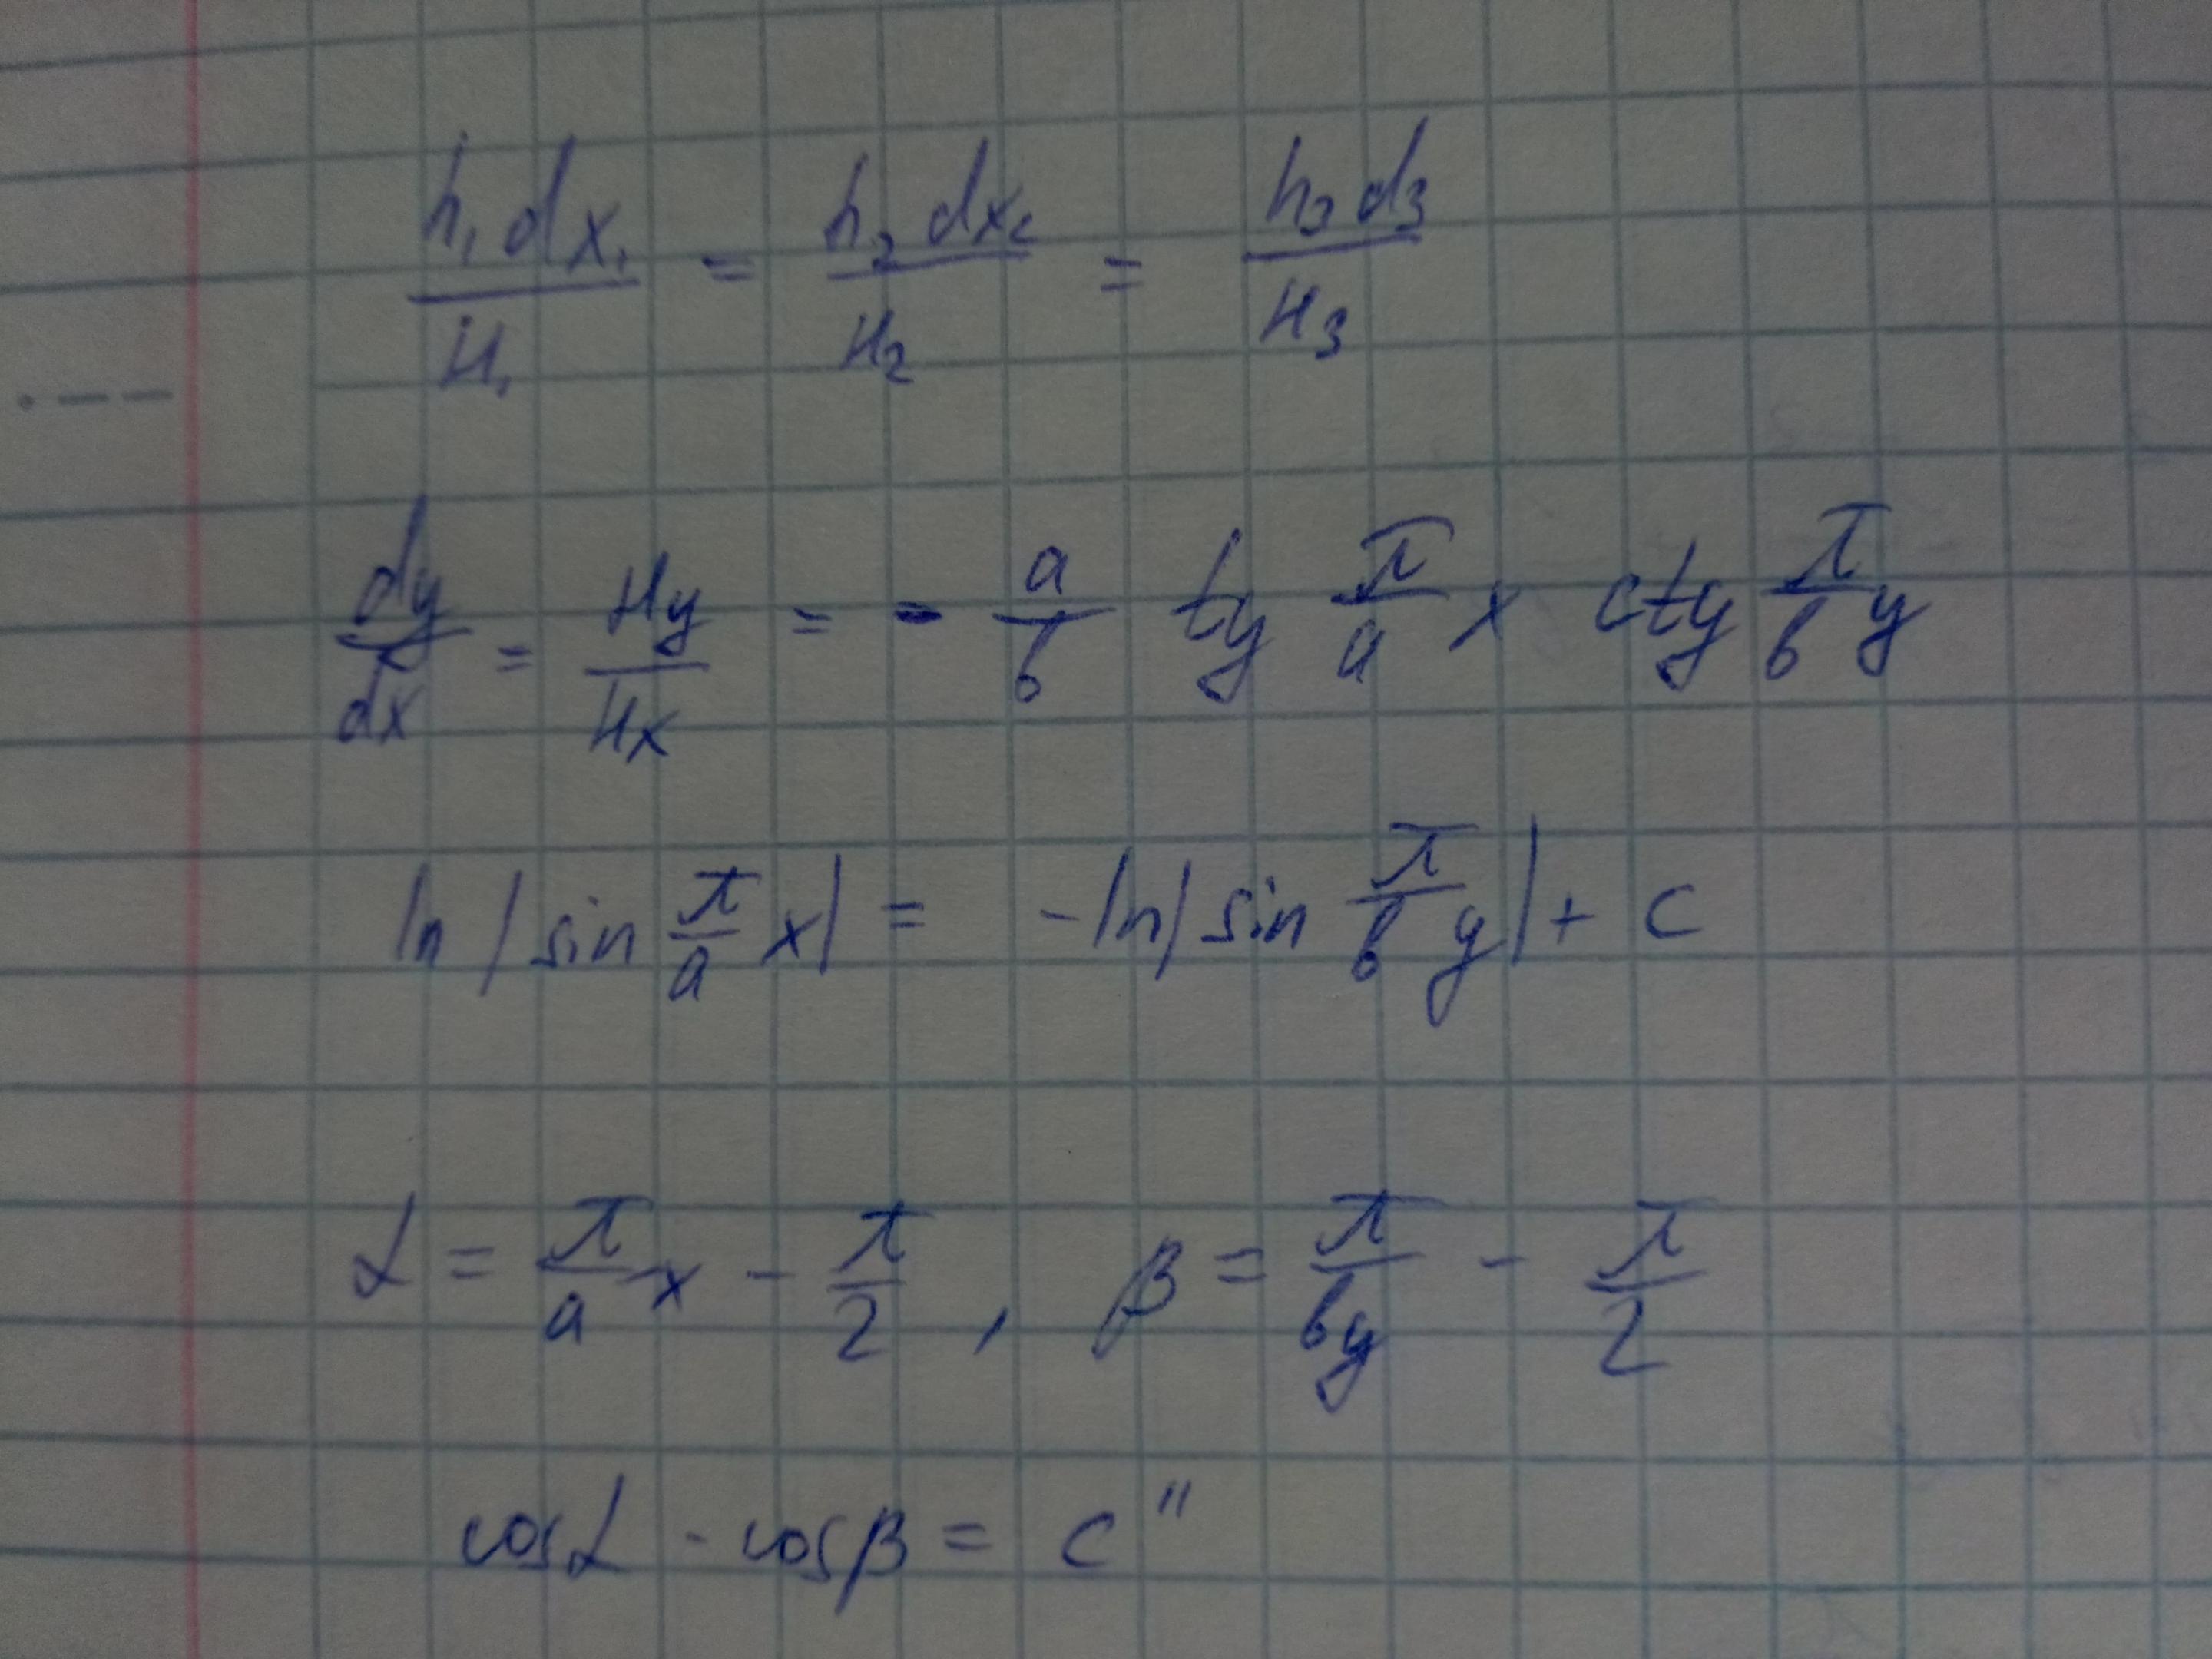 h₁dx₁/H₁ = h₂dx₂/H₂ = h₃d₃/H₃
dy/dx = Hy/Hx = - a/b tg π/a x ctg π/b y
ln |sin π/a x| = -ln|sin π/b y| + C
α = π/a x - π/2 , β = π/by - π/2
cosα - cosβ = C"